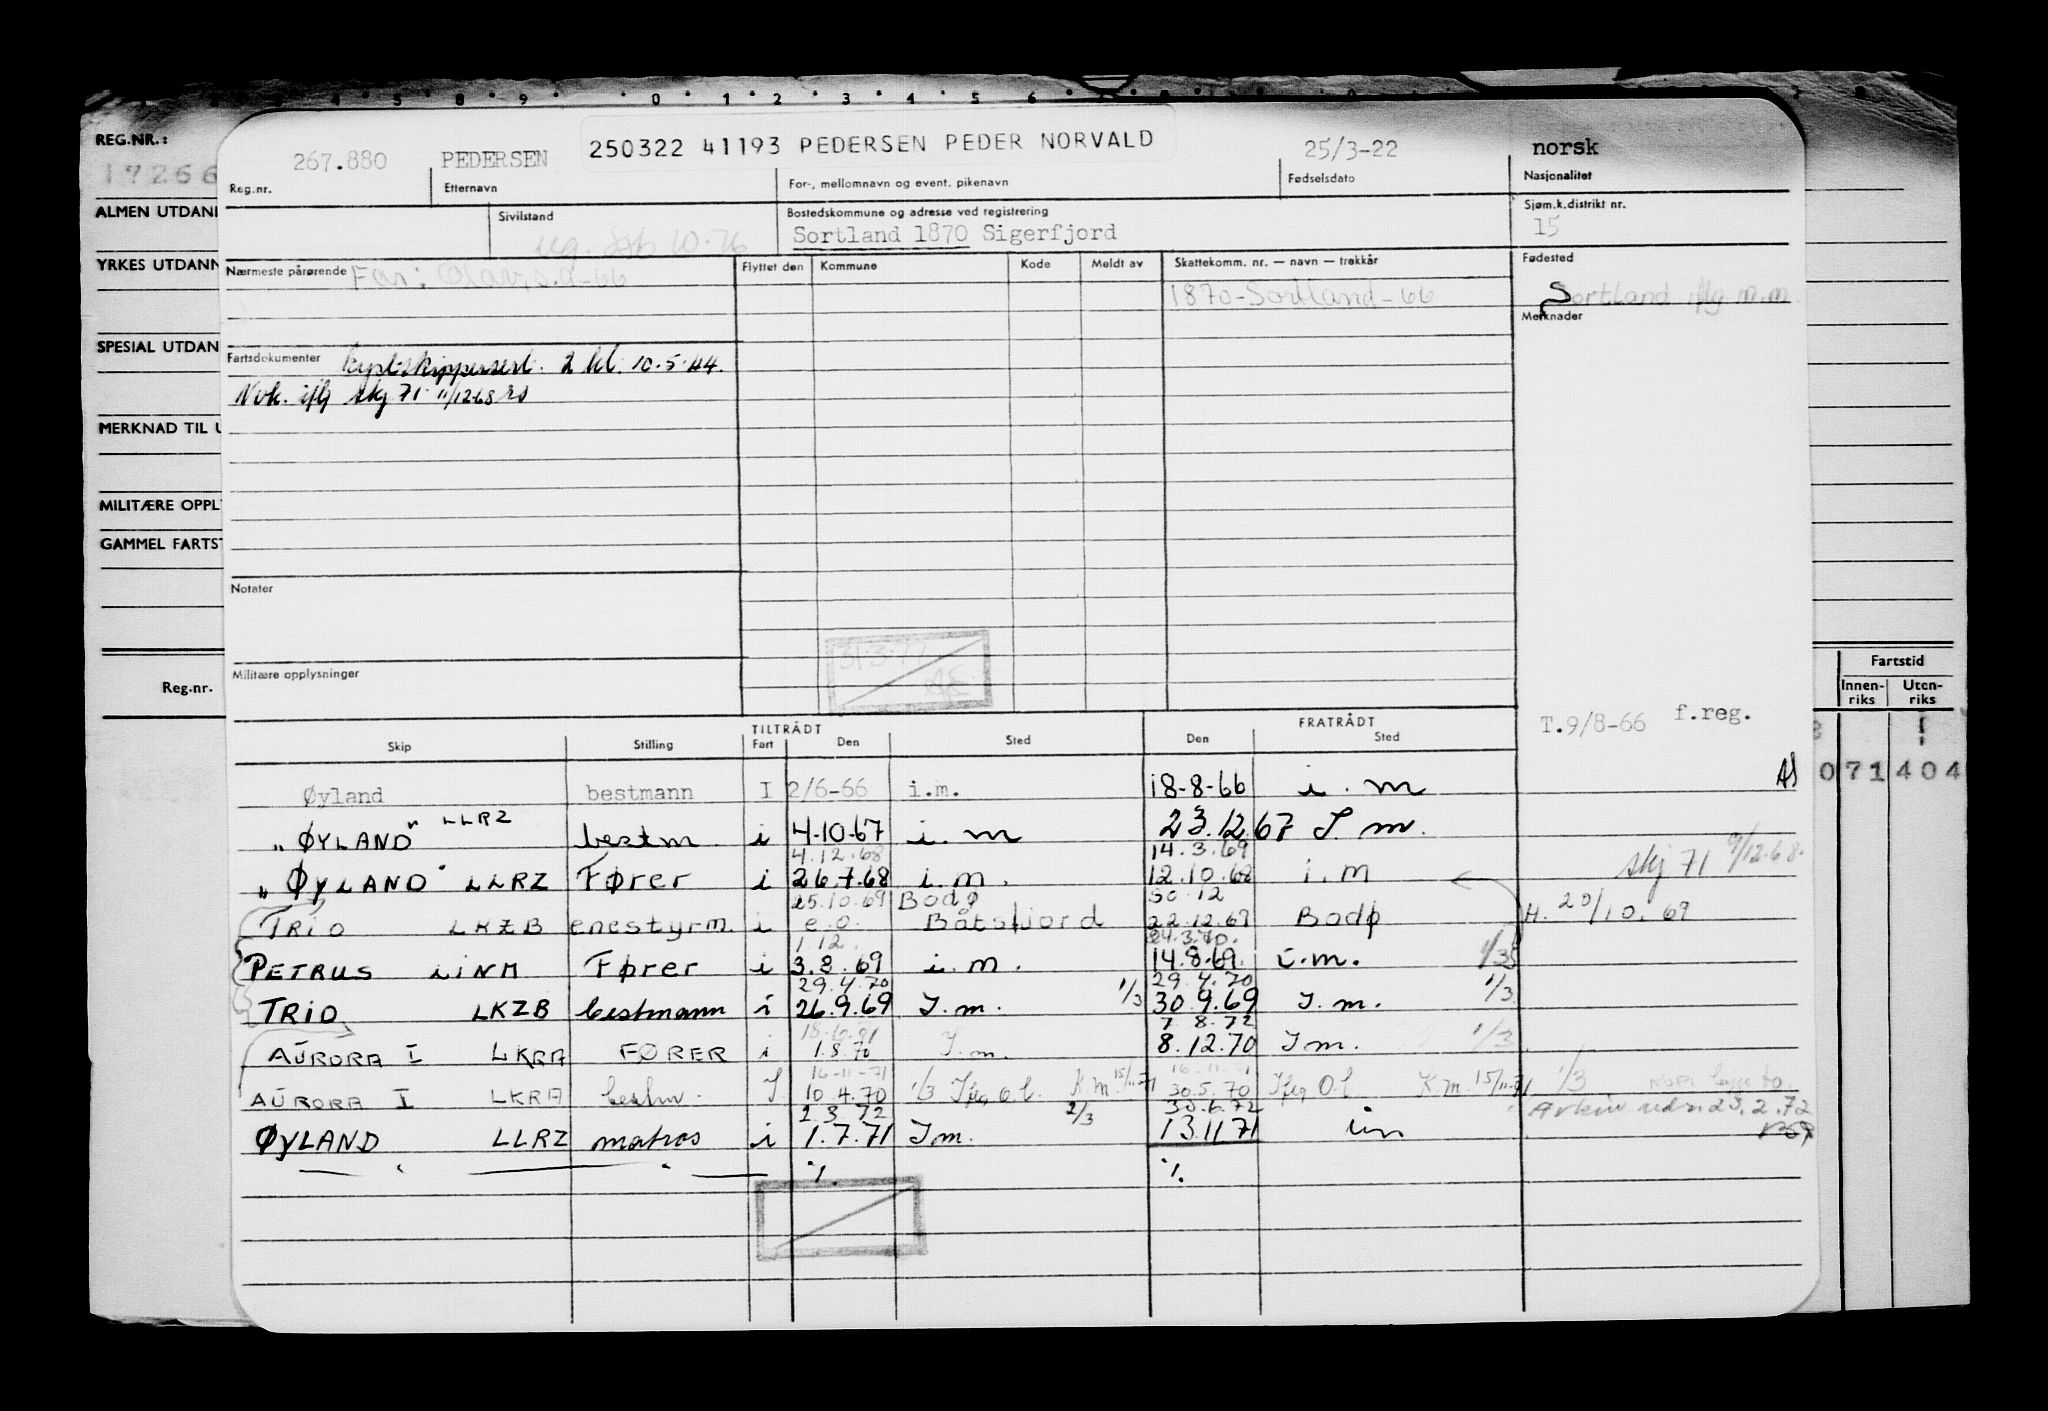 REG.NR.:
267.880 PEDERSEN 250322 41193 PEDERSEN PEDER NORVALD 25/3-22 norsk
Reg.nr. Etternavn For-, mellomnavn og event. pikenavn Fødselsdato Nasjonalitet
ALMEN UTDANN
Sivilstand Bostedskommune og adresse ved registrering Sjøm.k.distrikt nr.
Sortland 1870 Sigerfjord 15
YRKES UTDANN
Nærmeste pårørende Far: Flyttet den Kommune Kode Meldt av Skattekomm. nr. — navn — trekkår Fødested
1870-Sortland-66 Sortland iflg m.m
Merknader
SPESIAL UTDAN
Fartsdokumenter kyst-skippersert. 2 kl. 10.5.44.
Nvk. iflg skj 71 11/12-68
MERKNAD TIL U
MILITÆRE OPPLY
GAMMEL FARTST
Notater
31.3.77
Militære opplysninger
Reg.nr.
Fartstid
Innen-riks Uten-riks
T.9/8-66 f.reg.
TILTRÅDT FRATRÅDT
Skip Stilling Fart Den Sted Den Sted
071 404
Øyland bestmann I 2/6-66 i.m. 18-8-66 i.m
"ØYLAND" LLRZ bestm. i 4-10-67 i.m 23.12.67 I m.
4.12.68 14.3.69
"ØYLAND" LLRZ Fører i 26.7.68 i.m. 12.10.68 i.m skj 71 9/12-68.
25.10.69 Bodø 30.12
TRIO LKZB enestyrm. i e.o. Båtsfjord 22.12.69 Bodø H. 20/10.69
1 12. 24.3.70.
PETRUS LINM Fører i 3.8.69 i.m. 14.8.69. i.m. 1/3
29.4.70 29.4.70
TRIO LKZB bestmann i 26.9.69 I.m. 1/3 30.9.69 I.m. 1/3
18.6.71 7 8.72
AURORA I LKRA FØRER i 1.8.70 I.m. 8.12.70 I m. 1/3
16-11-71 16-11-71
AURORA I LKRA bestm. I 10.4.70 1/3 Ifg O.L. K.m. 15/11-71 30.5.70 Ifg O.L K.m 15/11-71 1/3
2.3.72 2/3 30.6.72 Arkiv udn 23.2.72
ØYLAND LLRZ matros i 1.7.71 I m. 13.11 71 im
./. ./.